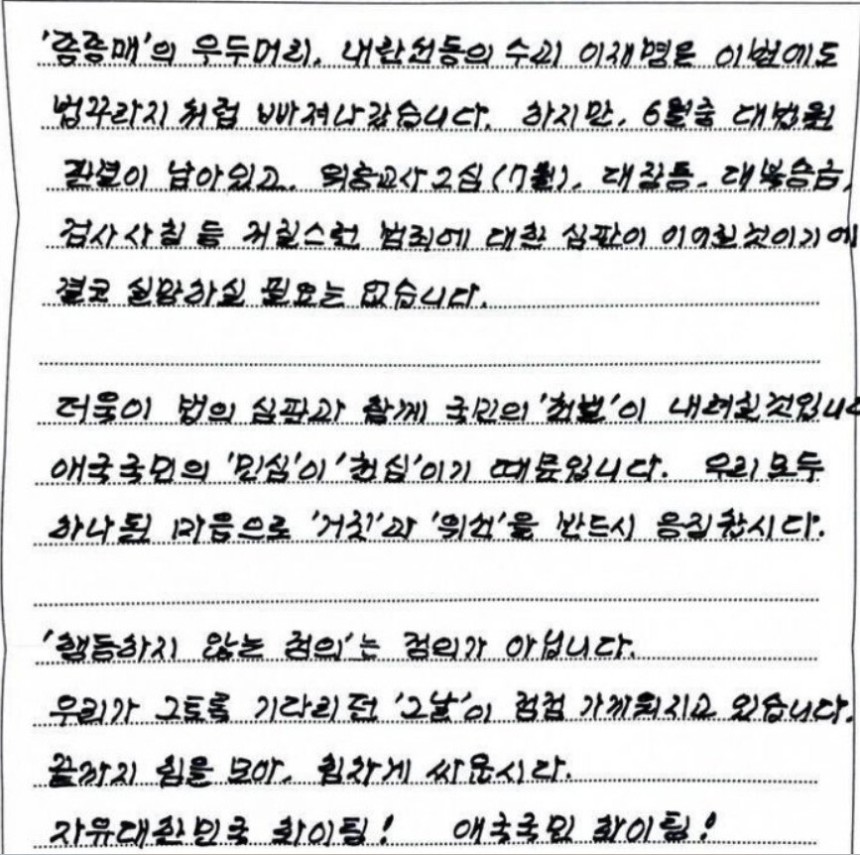 '종종매'의 우두머리, 내란선동의 수괴 이재명은 이번에도
법꾸라지 처럼 빠져나갔습니다. 하지만, 6월중 대법원
판결이 남아있고, 위증교사 2심(7월), 대장동, 대북송금,
검사사칭 등 저질스런 범죄에 대한 심판이 이어질것이기에
결코 실망하실 필요는 없습니다.
더욱이 법의 심판과 함께 국민의 '천벌'이 내려질것입니다
애국국민의 '민심'이 '천심'이기 때문입니다. 우리모두
하나된 마음으로 '거짓'과 '위선'을 반드시 응징합시다.
'행동하지 않는 정의'는 정의가 아닙니다.
우리가 그토록 기다리던 '그날'이 점점 가까워지고 있습니다.
끝까지 힘을 모아, 힘차게 싸웁시다.
자유대한민국 화이팅! 애국국민 화이팅!